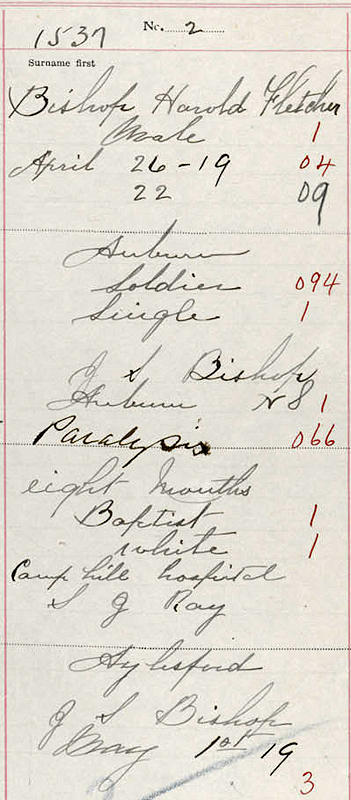 1537 No. 2
Surname first
Bishop Harold Fletcher
Male 1
April 26-19 04
22 09
Auburn
Soldier 094
Single 1
J S Bishop
Auburn N S 1
Paralysis 066
eight Months
Baptist 1
white 1
Camp hill hospital
S J Ray
Aylesford
J S Bishop
May 1st 19
3